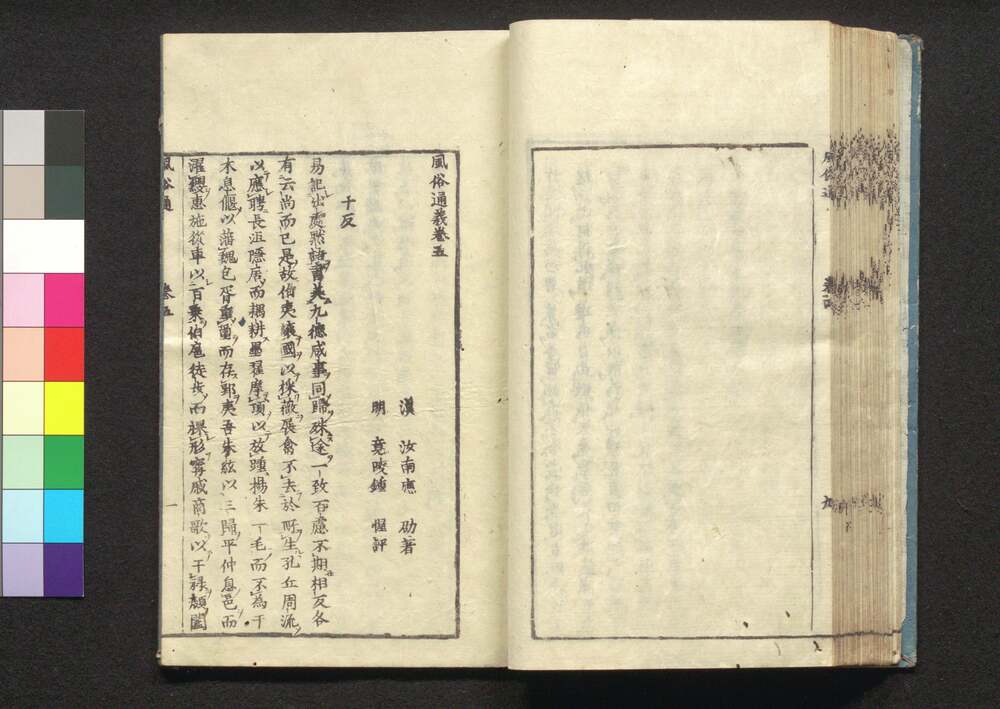 風俗通
卷四
風俗通義卷五
漢 汝南應 劭著
明 竟陵鍾 惺評
十反
易記出處默語書美九德咸事同歸殊途一致百慮不期相反各
有云尚而已是故伯夷讓國以採薇展禽不去於所生孔丘周流
以應聘長沮隱居而耦耕墨翟摩頂以放踵楊朱一毛而不為干
木息偃以藩魏包胥重繭而存郢夷吾朱紘以三歸平仲息邑而
濯纓惠施從車以百乘伯庬徒步而裸形寗戚商歌以干祿顏闔
風俗通
卷五
一